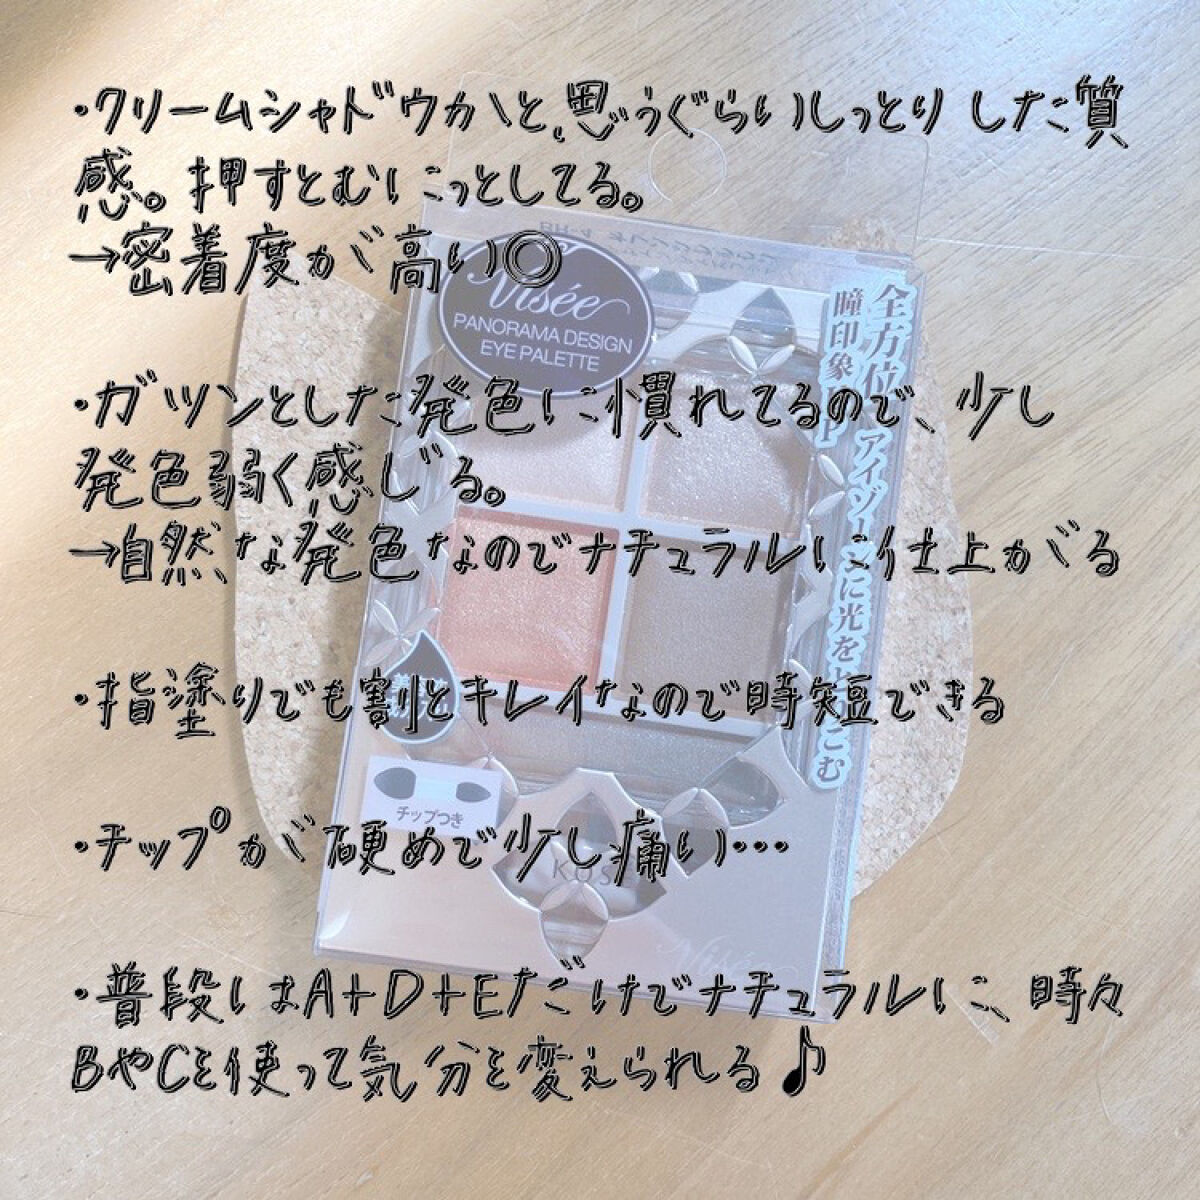 ・クリームシャドウかと思うぐらいしっとりした質
感。押すとむにっとしてる。
→密着度が高い◎
・ガツンとした発色に慣れてるので、少し
発色弱く感じる。
→自然な発色なのでナチュラルに仕上がる
・指塗りでも割とキレイなので時短できる
・チップが硬めで少し痛い…
・普段はA+D+Eだけでナチュラルに、時々
BやCを使って気分を変えられる♪
Visée
PANORAMA DESIGN
EYE PALETTE
全方位
アイゾー
に光を
こむ
瞳印象
チップつき
KOSÉ
Visée